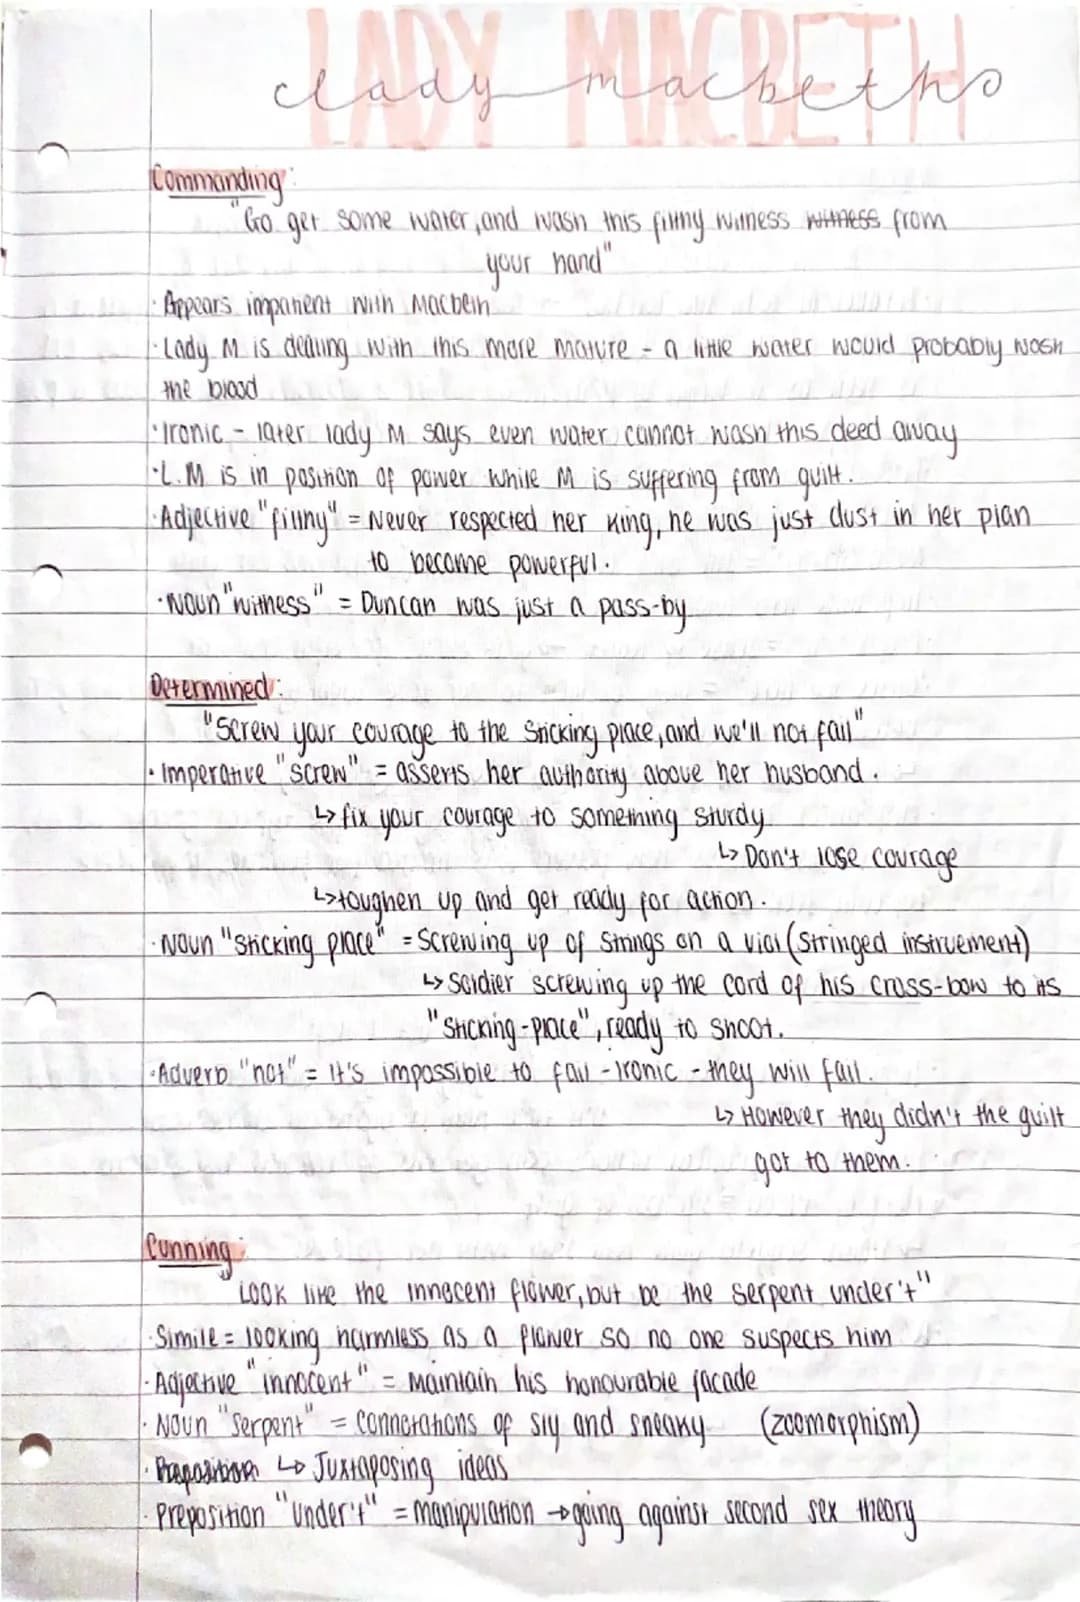 LADY MACBETH
lady macbeth
Commanding:
"Go get some water, and wash this filthy witness witness from
your hand"
· Appears impatient with Macbeth
· Lady M is dealing with this more mature - a little water would probably wash
the blood
· Ironic - later lady M says even water cannot wash this deed away
· L.M is in position of power while M is suffering from guilt.
· Adjective "filthy" = Never respected her king, he was just dust in her plan
to become powerful.
· Noun "witness" = Duncan was just a pass-by
Determined:
"Screw your courage to the sticking place, and we'll not fail"
· Imperative "screw" = asserts her authority above her husband.
↳ fix your courage to something sturdy.
↳ Don't lose courage
↳ toughen up and get ready for action.
· Noun "sticking place" = Screwing up of strings on a viol (stringed instruement)
↳ Soldier screwing up the cord of his cross-bow to its
"sticking-place", ready to shoot.
· Adverb "not" = It's impossible to fail - Ironic - they will fail.
↳ However they didn't the guilt
got to them.
Cunning:
"Look like the innocent flower, but be the serpent under't"
· Simile = looking harmless as a flower so no one suspects him
· Adjective "innocent" = Maintain his honourable facade
· Noun "serpent" = connotations of sly and sneaky (zoomorphism)
· Preposition ↳ Juxtaposing ideas
· Preposition "under't" = manipulation → going against second sex theory